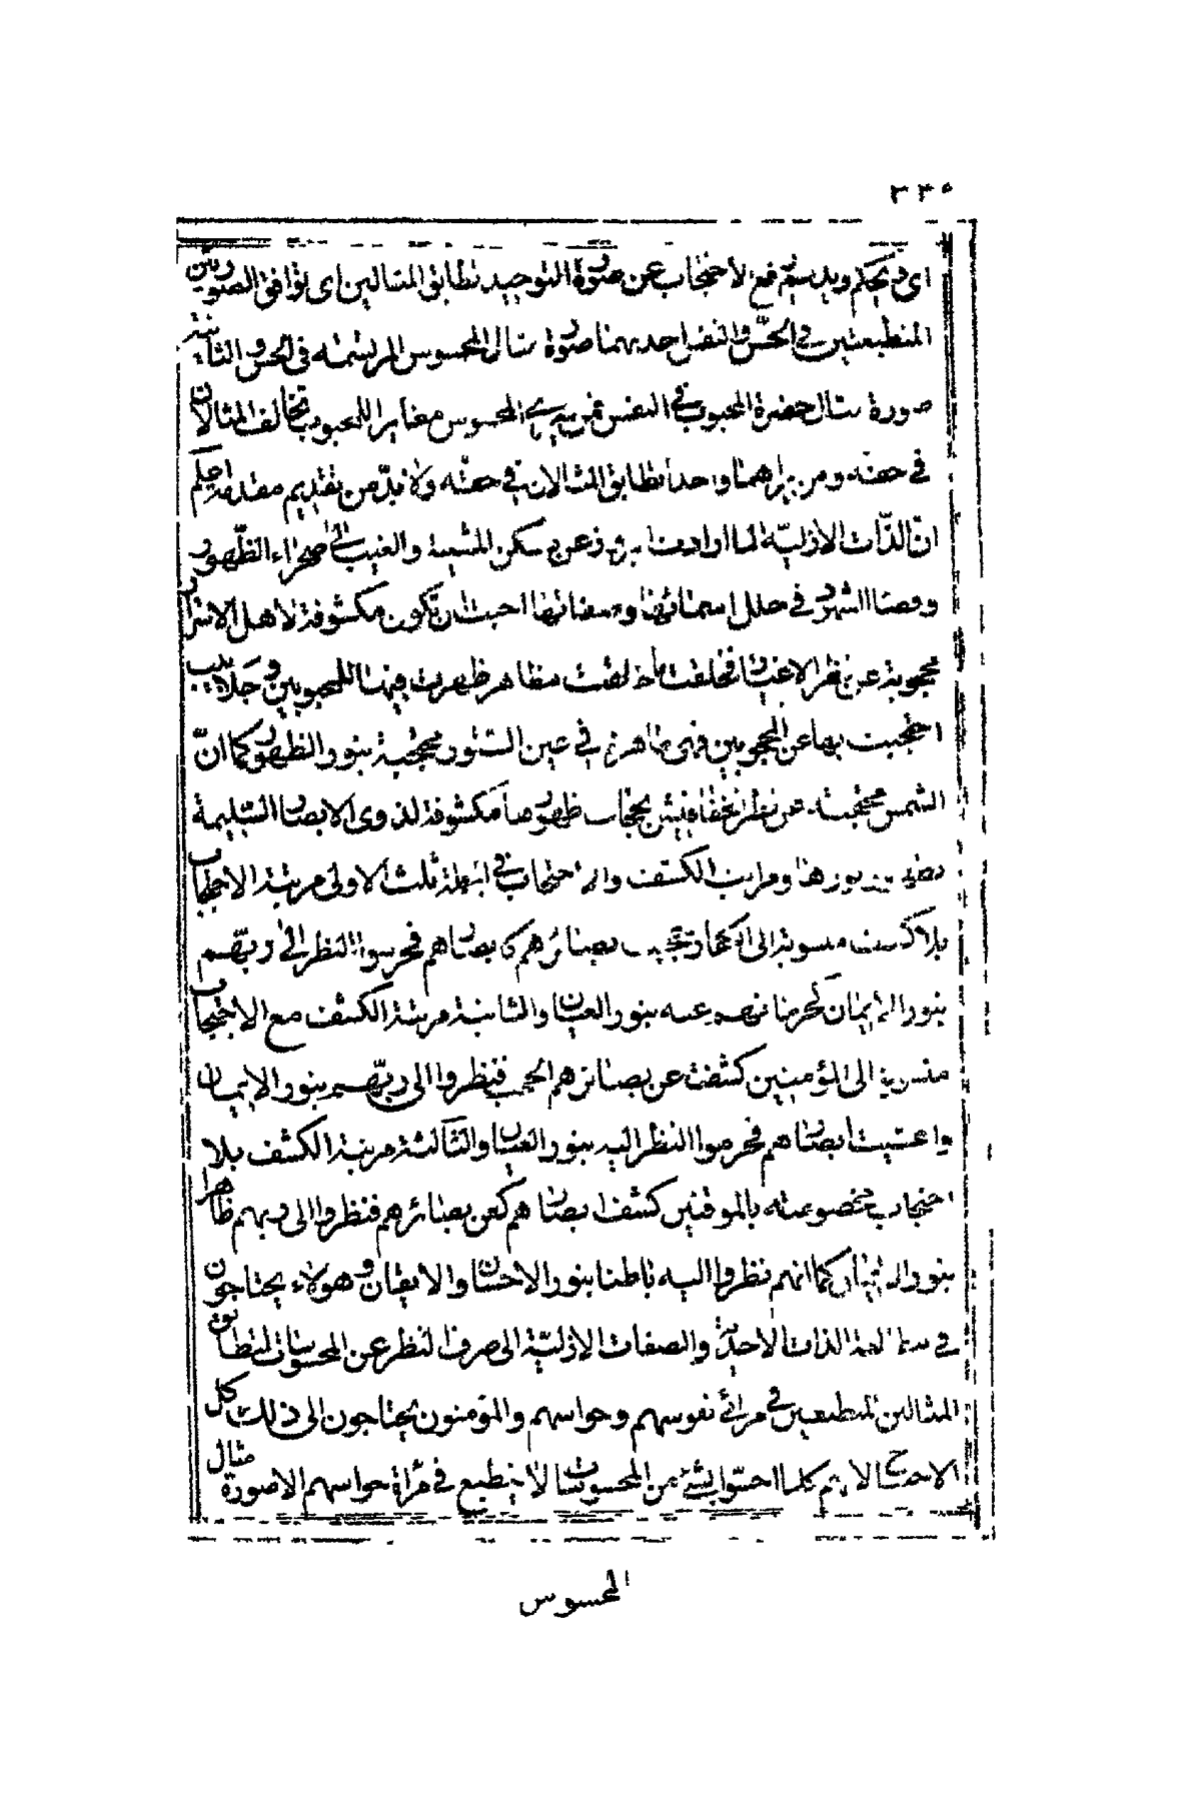 ٢٣٥
اى يحكم ويديم رفع الاحتجاب عن صورة التوحيد تطابق المثالين اى توافق الصورتين
المنطبعتين في الحسّ والنفس احديهما صورة مثال المحسوس المرتسمة في الحس والثانية
صورة مثال حضرة المحبوب في النفس فمن يرى المحسوس مغايرا للمحبوب تخالف المثالان
في حقه ومن يراهما واحدا تطابق المثالان في حقه ولا بدّ من تقديم مقدمة اعلم
انّ الذّات الازليّة لما ارادت البروز عن مكمن المشية والغيب الى صحراء الظّهور
وفضاء الشهود في حلل اسمائها وصفاتها احبت ان تكون مكشوفة لاهل الاسرار
محجوبة عن نظر الاغيار فخلقت ما خلقت مظاهر ظهرت فيها للمحبوبين وجلابيب
احتجبت بها عن المحجوبين فهى ظاهرة في عين الستور محتجبة بنور الظهور كما انّ
الشمس محتجبة عن نظر الخفافيش بحجاب ظهورها مكشوفة لذوى الابصار السّليمة
بنورها ومراتب الكشف والاحتجاب في الجملة ثلث الاولى مرتبة الاحتجاب
بلا كشف منسوبة الى الكفار تحجبت بصائرهم كابصارهم فحرموا النظر الى ربّهم
بنور الايمان كحرمانهم عنه بنور العيان والثانية مرتبة الكشف مع الاحتجاب
منسوبة الى المؤمنين كشفت عن بصائرهم الحجب فنظروا الى ربّهم بنور الايمان
واعشيت ابصارهم فحرموا النظر اليه بنور العيان والثالثة مرتبة الكشف بلا
احتجاب مخصوصة بالموقنين كشف ابصارهم كعن بصائرهم فنظروا الى ربهم ظاهرا
بنور العيان كما انهم نظروا اليه باطنا بنور الاحسان والايقان وهؤلاء يحتاجون
في مطالعة الذات الاحديّة والصفات الازليّة الى صرف النظر عن المحسوسات لتطابق
المثالين المنطبعين في مرائى نفوسهم وحواسهم والمؤمنون يحتاجون الى ذلك كل
الاحتياج لانهم كلما احسّوا بشئ من المحسوسات لا ينطبع في مرأة حواسهم الا صورة مثال
المحسوس